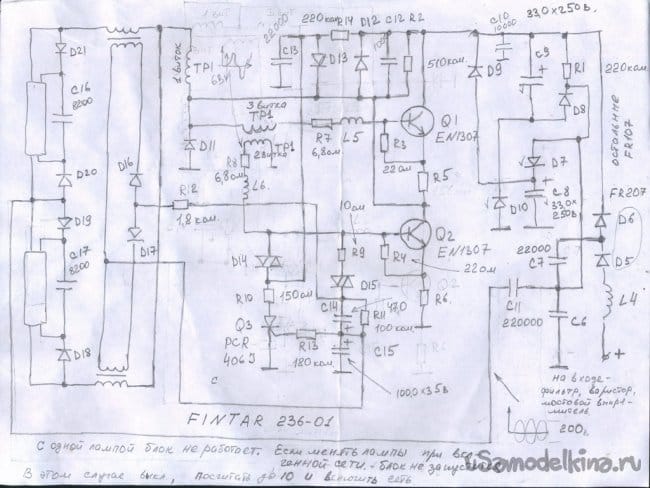 1 виток
22000
220ком. R14 D12 C12 R2
C10
10000
33,0х250в.
D21
C16
8200
1 виток
ТР1
63в
C13
D13
510ком
D9
C9
R1
220ком.
D8
остольные
FR107
3 витка
ТР1
L5
Q1
EN1307
D11
R7
6,8ом.
R3
22ом
D7
ТР1
2витка
R8
6,8ом
L6.
R5
D20
D16
R12
1,8ком.
D10
C8
33,0х
250в.
FR207
D6
D19
D17
10ом
Q2
EN1307
22000
C7
D5
C17
8200
D14
R9
R4
22ом
L4
R10
150ом
D15
C14
47,0
R6.
C11
220000
C6
Q3
PCR
406J
R13
180ком.
R11
100ком
C15
D18
100,0х35в
+
на входе-
фильтр, варистор,
мостовой выпря-
митель
FINTAR 236-01
200в
С одной лампой блок не работает. Если менять лампы при вкл
ченной сети. - блок не запустится
В этом случае выкл, посчитать до 10 и включить сеть
Samodelkina.ru